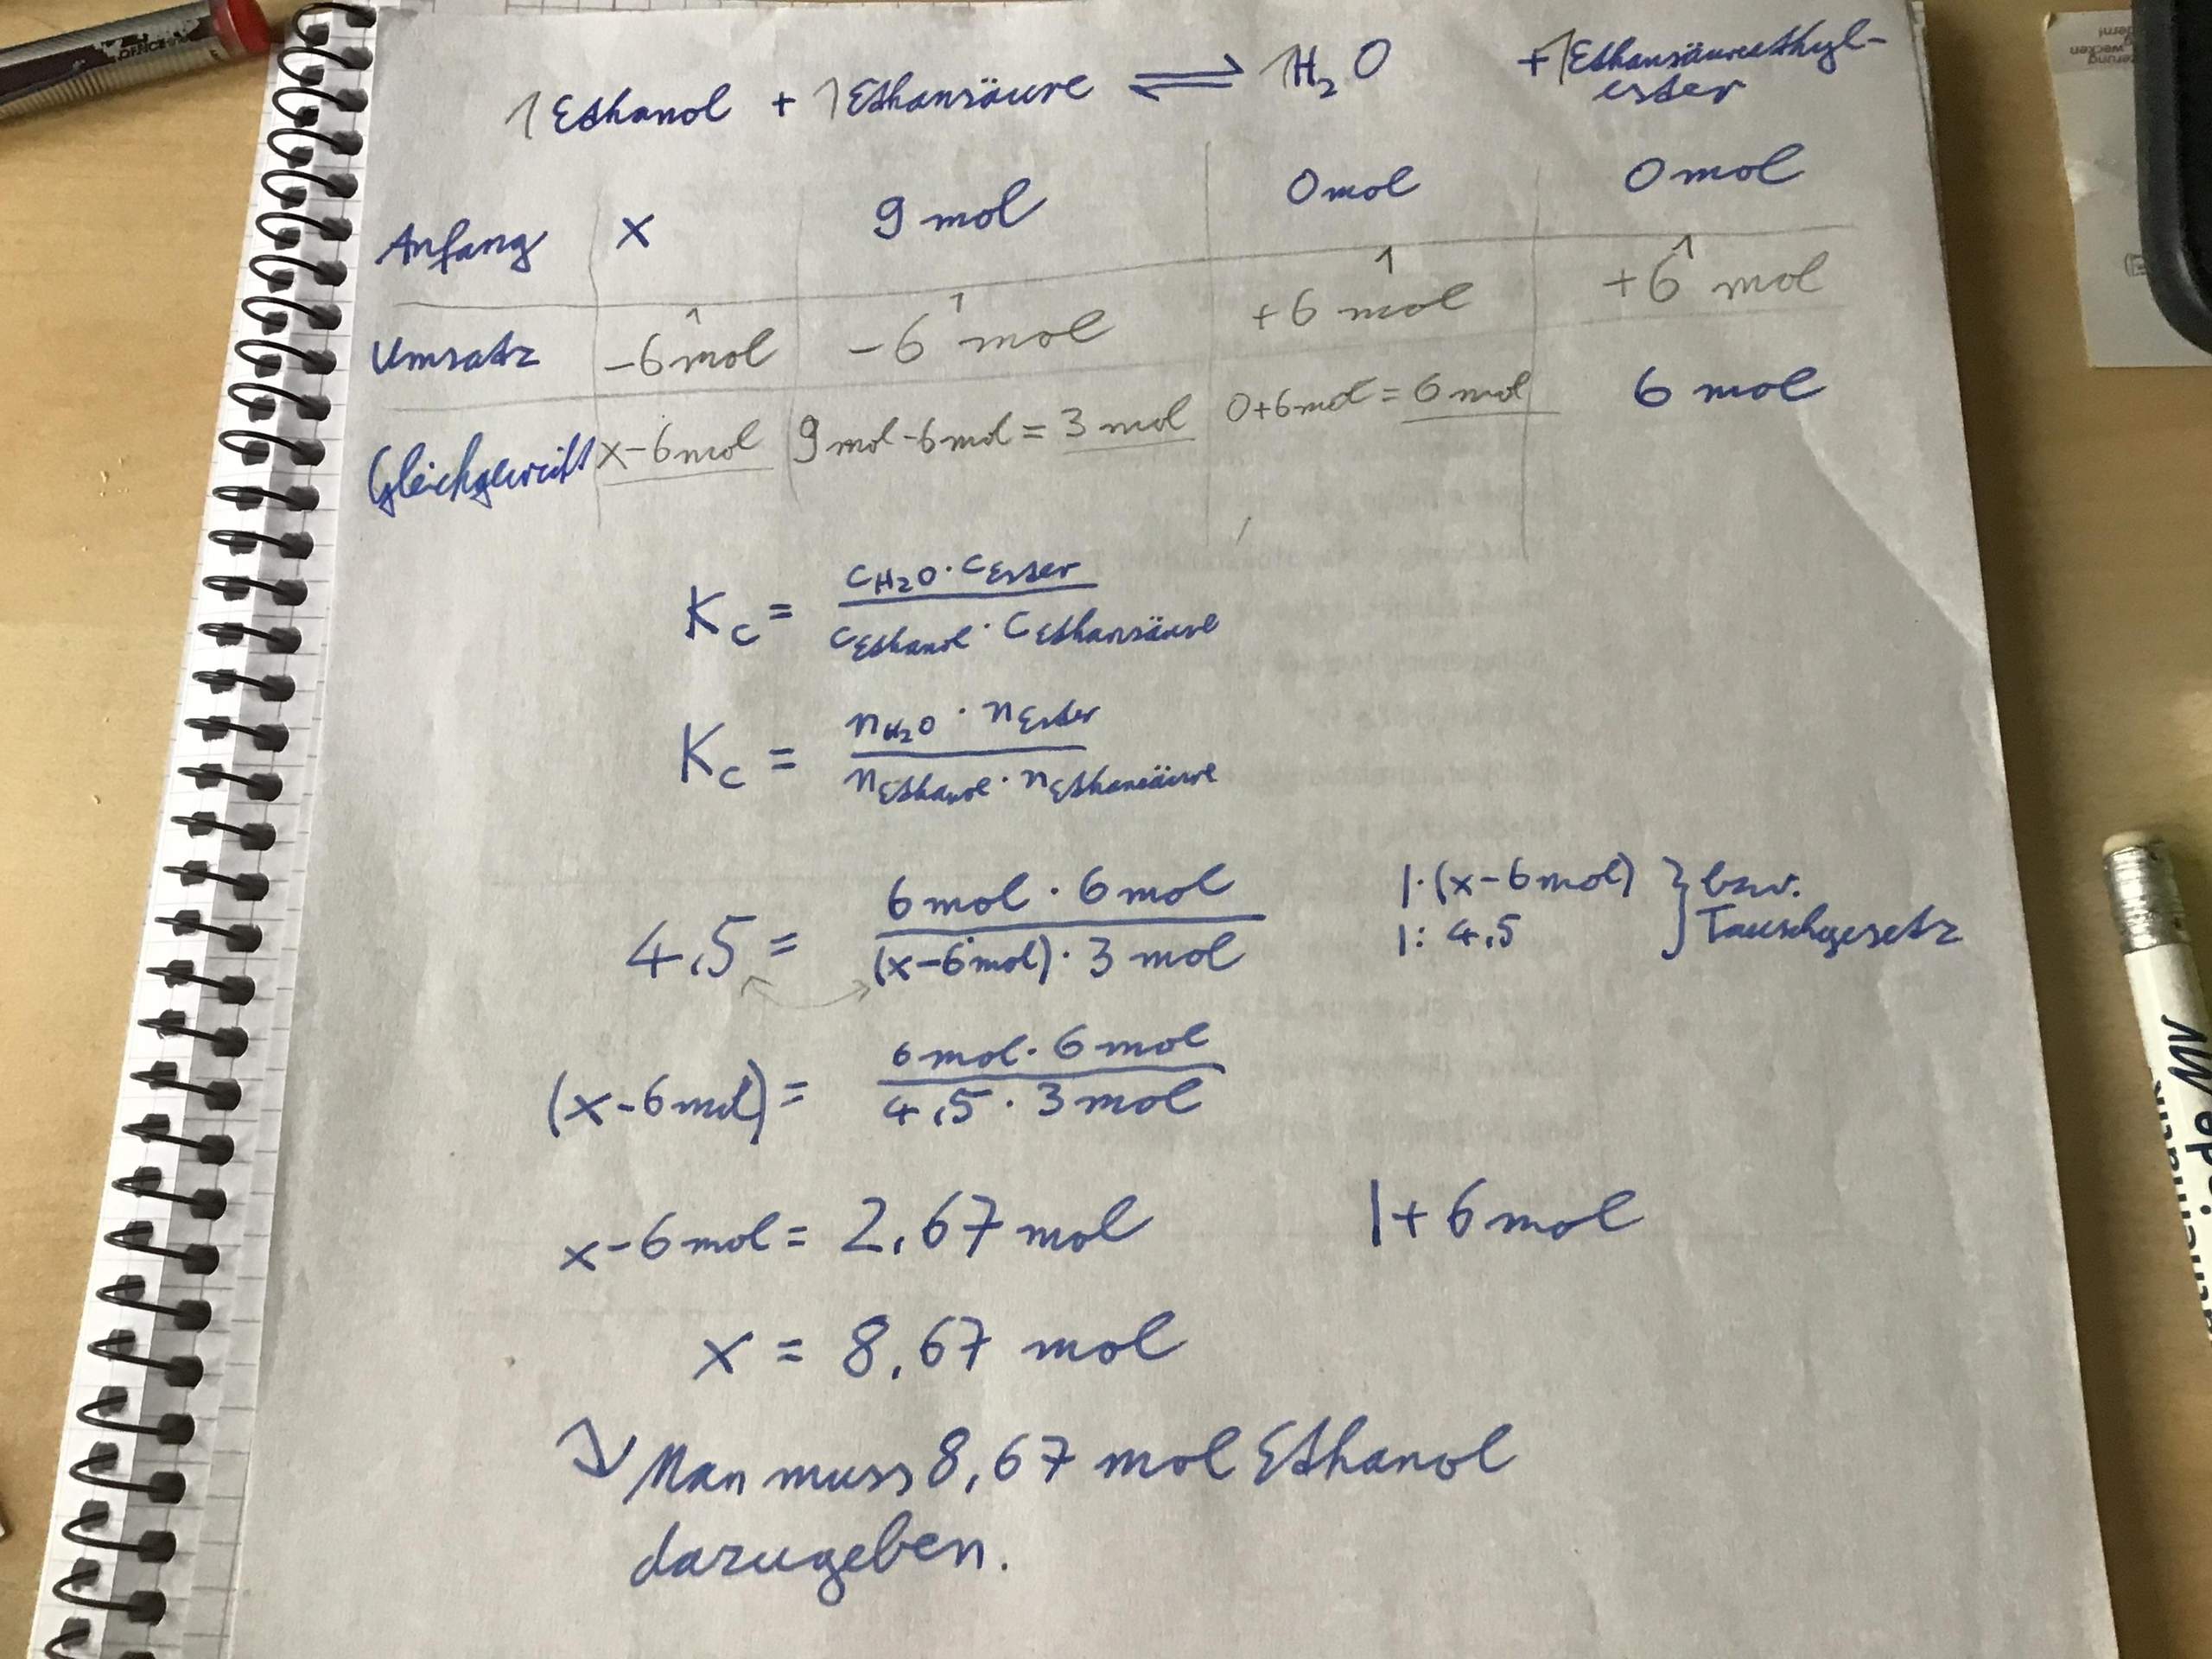 1 Ethanol + 1 Ethansäure ⇌ 1 H₂O + 1 Ethansäureethyl-
ester
Anfang x 9 mol 0 mol 0 mol
Umsatz -6 mol -6 mol +6 mol +6 mol
Gleichgewicht x-6mol 9 mol-6mol = 3 mol 0+6mol = 6 mol 6 mol
K_c = (c_H₂O · c_Ester) / (c_Ethanol · c_Ethansäure)
K_c = (n_H₂O · n_Ester) / (n_Ethanol · n_Ethansäure)
4,5 = (6 mol · 6 mol) / ((x-6mol) · 3 mol) |·(x-6mol) } bzw.
|: 4,5 Tauschgesetz
(x-6mol) = (6 mol · 6 mol) / (4,5 · 3 mol)
x-6mol = 2,67 mol |+6 mol
x = 8,67 mol
↳ Man muss 8,67 mol Ethanol
dazugeben.